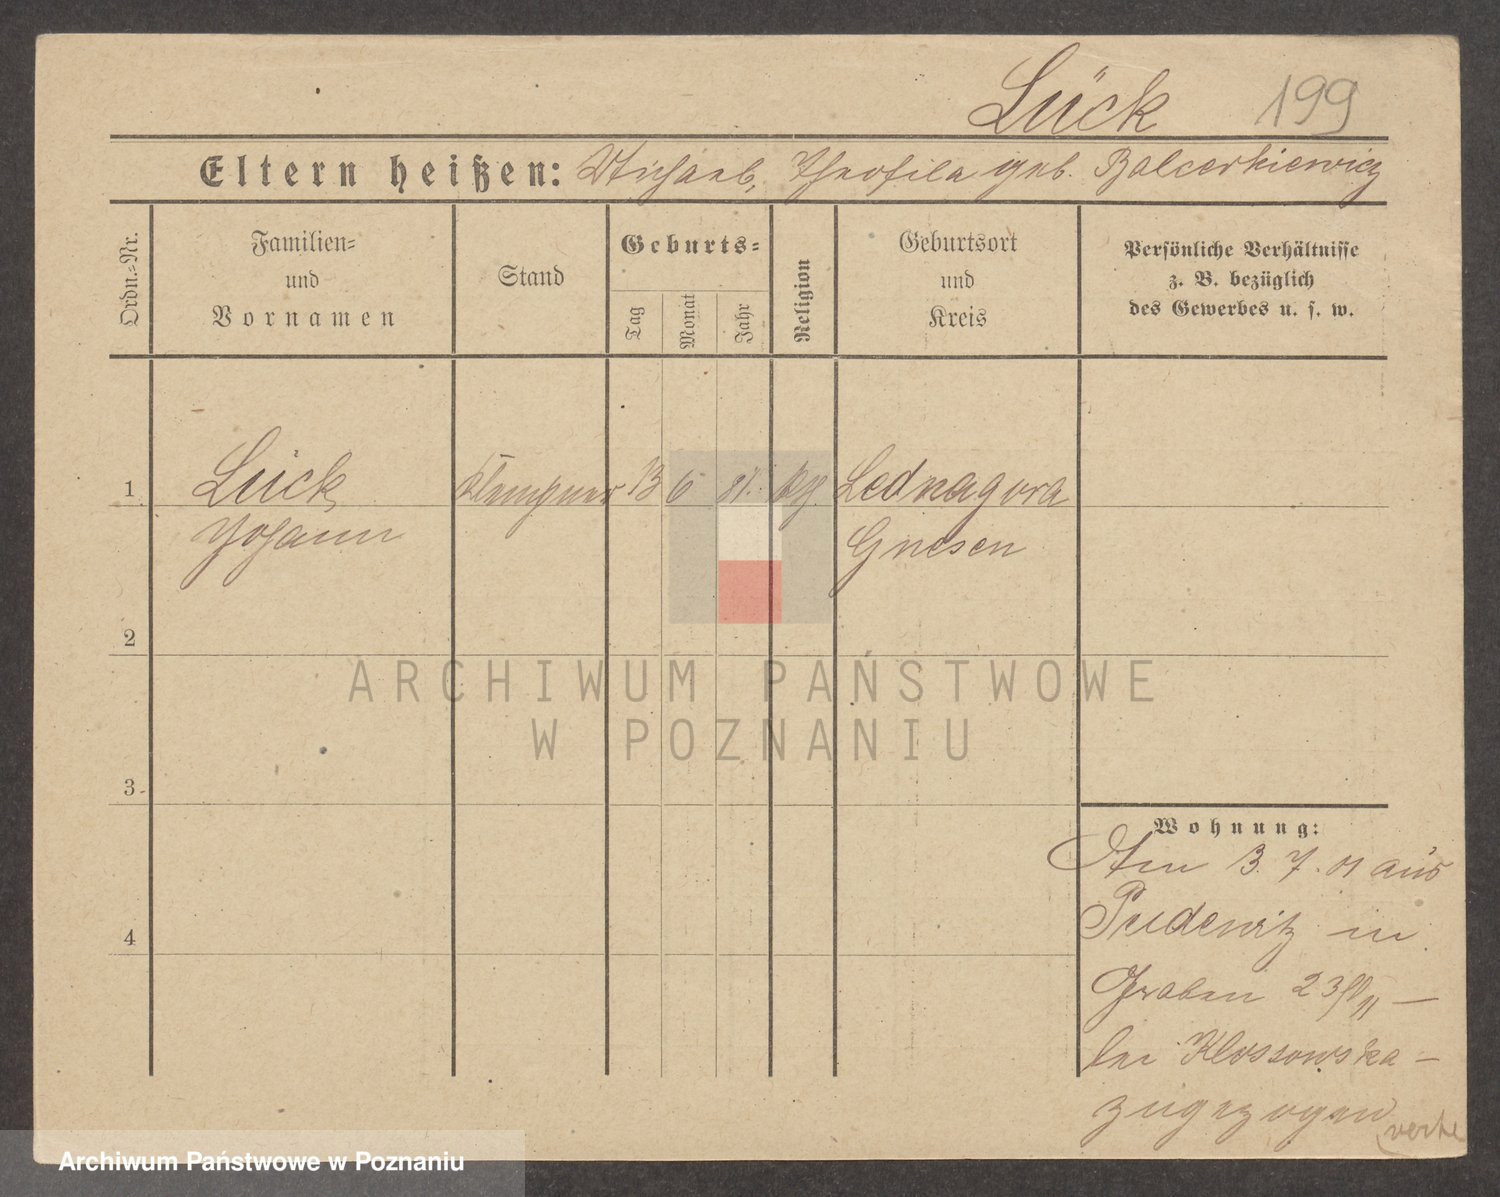 Lück 199
Eltern heißen: Michael, Theofila geb. Balcerkiewicz
Ordn.-Nr.
Familien-
und
Vornamen
Stand
Geburts-
Tag
Monat
Jahr
Religion
Geburtsort
und
Kreis
Persönliche Verhältnisse
z. B. bezüglich
des Gewerbes u. s. w.
1 Lück Klempner 13 6 81. Lednagora
Johann Gnesen
2
3
4
ARCHIWUM PAŃSTWOWE
W POZNANIU
Wohnung:
Am 3. 7. 01 aus
Pudewitz in
Graben 23
bei Klossowska
zugezogen
Archiwum Państwowe w Poznaniu